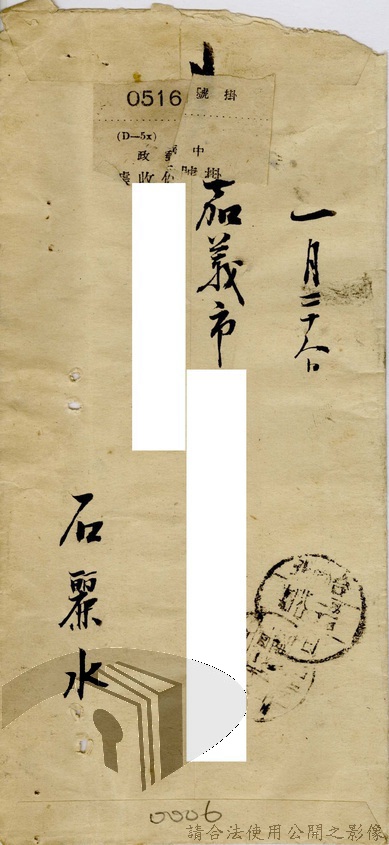 0516 號 掛
(D—5x)
政 郵 中
收 掛
一月二十八日
嘉義市
石麗水
0006
請合法使用公開之影像